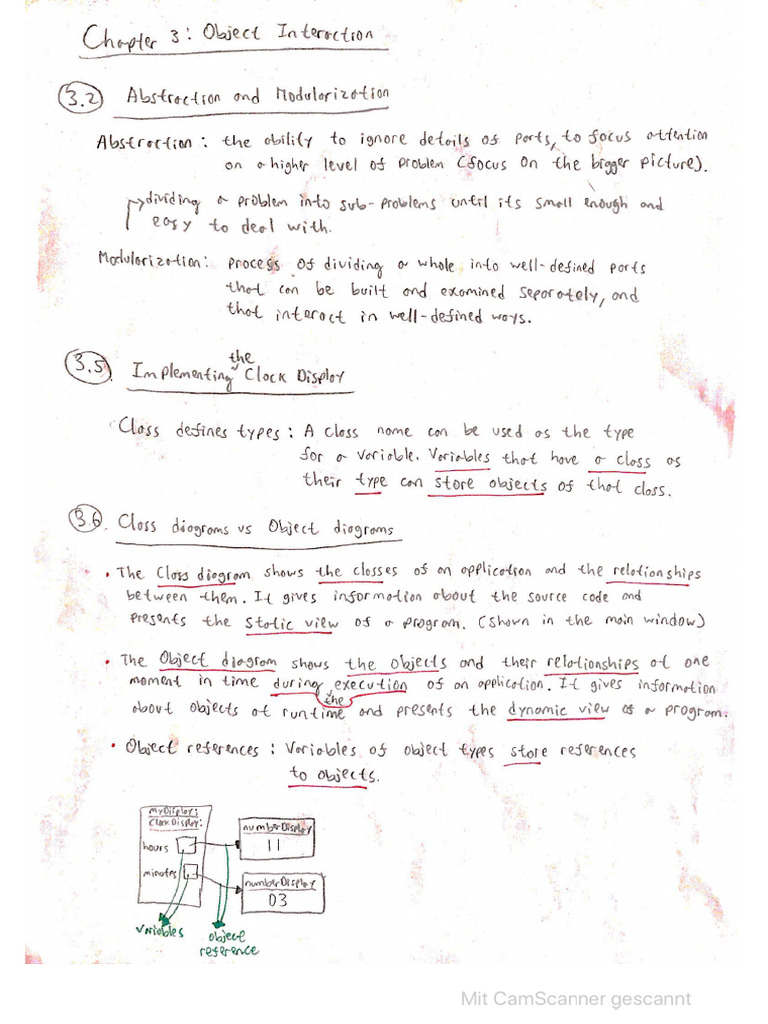 Chapter 3: Object Interaction
3.2 Abstraction and Modularization
Abstraction: the ability to ignore details of parts, to focus attention
on a higher level of problem (focus on the bigger picture).
dividing a problem into sub-problems until its small enough and
easy to deal with.
Modularization: process of dividing a whole into well-defined parts
that can be built and examined seperately, and
that interact in well-defined ways.
3.5. Implementing the Clock Display
Class defines types: A class name can be used as the type
for a variable. Variables that have a class as
their type can store objects of that class.
3.6. Class diagrams vs Object diagrams
• The Class diagram shows the classes of an application and the relationships
between them. It gives information about the source code and
presents the static view of a program. (Shown in the main window)
• The Object diagram shows the objects and their relationships at one
moment in time during the execution of an application. It gives information
about objects at runtime and presents the dynamic view of a program.
• Object references: Variables of object types store references
to objects.
myDisplay:
ClockDisplay:
hours
minutes
numberDisplay
11
numberDisplay
03
variables
object
reference
Mit CamScanner gescannt